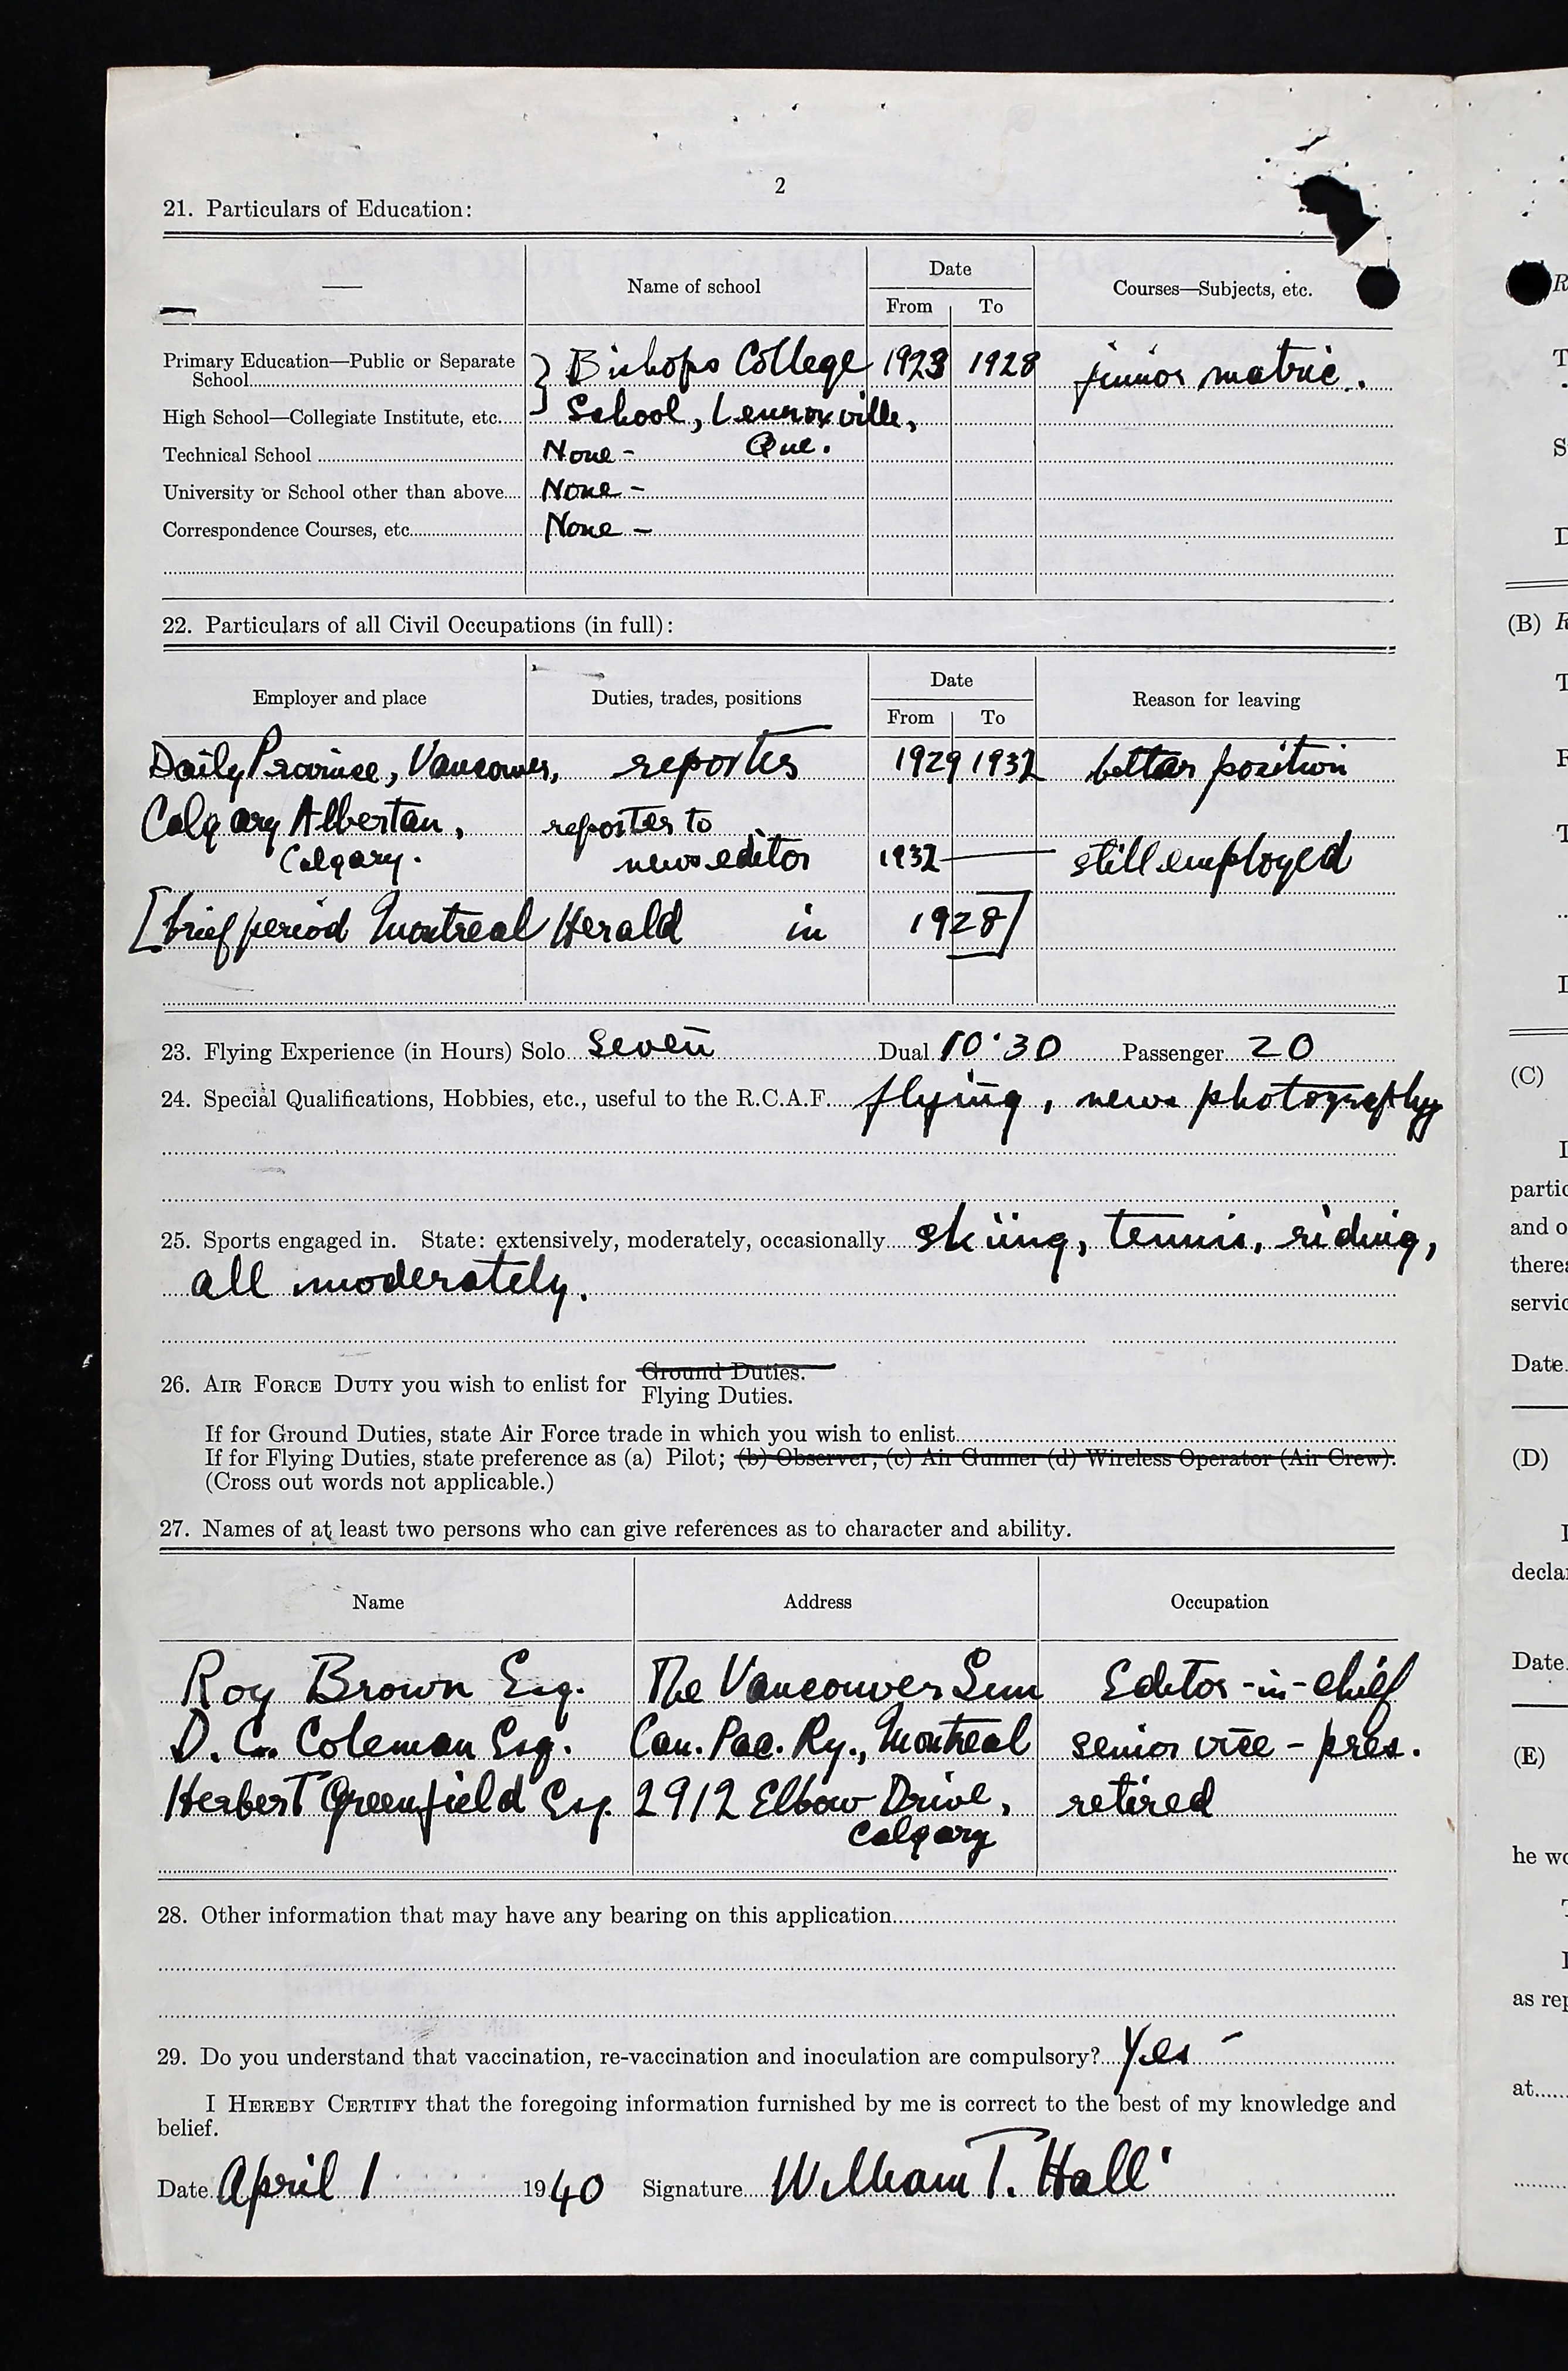 2
21. Particulars of Education:
— Name of school Date Courses—Subjects, etc.
From To
Primary Education—Public or Separate School Bishops College 1923 1928 junior matric.
High School—Collegiate Institute, etc. School, Lennoxville,
Technical School None - Que.
University or School other than above None -
Correspondence Courses, etc. None -
22. Particulars of all Civil Occupations (in full):
Employer and place Duties, trades, positions Date Reason for leaving
From To
Daily Province, Vancouver, reporter 1929 1932 better position
Calgary Albertan, reporter to
Calgary. news editor 1932 — still employed
[brief period Montreal Herald in 1928]
23. Flying Experience (in Hours) Solo seven Dual 10·30 Passenger 20
24. Special Qualifications, Hobbies, etc., useful to the R.C.A.F. flying, news photography
25. Sports engaged in. State: extensively, moderately, occasionally skiing, tennis, riding,
all moderately.
Ground Duties.
26. Air Force Duty you wish to enlist for
Flying Duties.
If for Ground Duties, state Air Force trade in which you wish to enlist
If for Flying Duties, state preference as (a) Pilot; (b) Observer; (c) Air Gunner (d) Wireless Operator (Air Crew).
(Cross out words not applicable.)
27. Names of at least two persons who can give references as to character and ability.
Name Address Occupation
Roy Brown Esq. The Vancouver Sun Editor-in-chief
D. C. Coleman Esq. Can. Pac. Ry., Montreal senior vice-pres.
Herbert Greenfield Esq. 2912 Elbow Drive, retired
Calgary
28. Other information that may have any bearing on this application
29. Do you understand that vaccination, re-vaccination and inoculation are compulsory? Yes -
I Hereby Certify that the foregoing information furnished by me is correct to the best of my knowledge and
belief.
Date April 1 1940 Signature William T. Hall
(B)
(C)
partic
and o
there
servic
Date
(D)
decla
Date
(E)
he wo
as rep
at